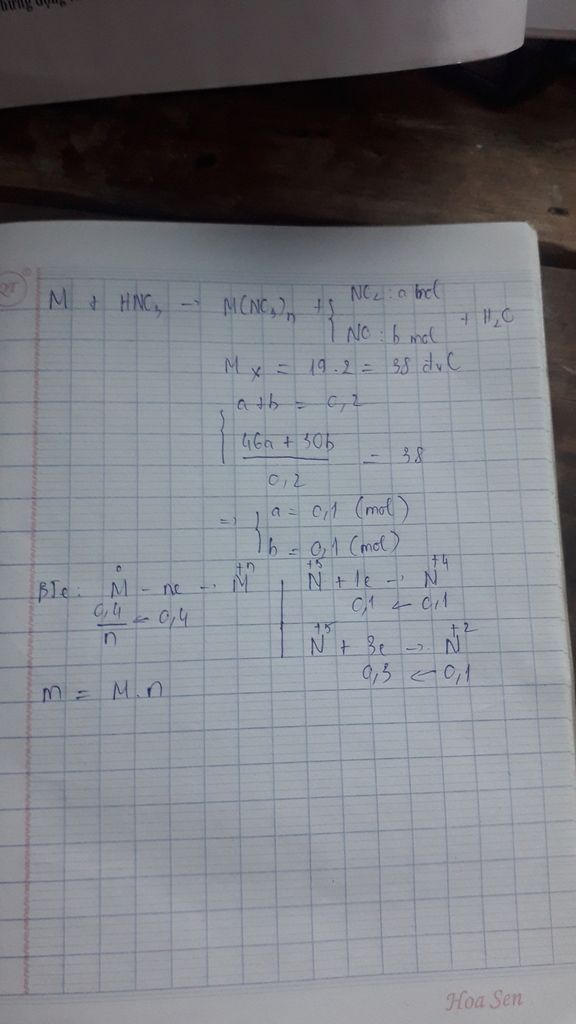 M + HNO₃ → M(NO₃)ₙ + { NO₂ : a mol
NO : b mol + H₂O
M x = 19.2 = 38 đvC
{ a+b = 0,2
46a + 30b / 0,2 = 38
=> { a = 0,1 (mol)
b = 0,1 (mol)
BTe: M⁰ - ne → M⁺ⁿ | N⁺⁵ + 1e → N⁺⁴
0,4/n ← 0,4 0,1 ← 0,1
N⁺⁵ + 3e → N⁺²
0,3 ← 0,1
m = M.n
Hoa Sen